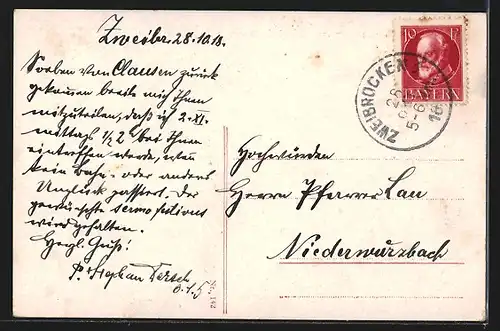 Zweibr. 28.10.18.
Soeben von Clausen zurück
gekommen beeile mich Ihnen
mitzuteilen, daß ich 2. XI.
mittags ½2 bei Ihnen
eintreffen werde, wenn
kein Bahn- oder anderes
Unglück passiert. Der
gewünschte sermo festivus
wird gehalten.
Hrzl. Gruß!
P. Stephan
10 Pf
BAYERN
ZWEIBRÜCKEN
28
5-6
18
Hochwürden
Herrn Pfarrer Lau
Niederwürzbach
No. 142